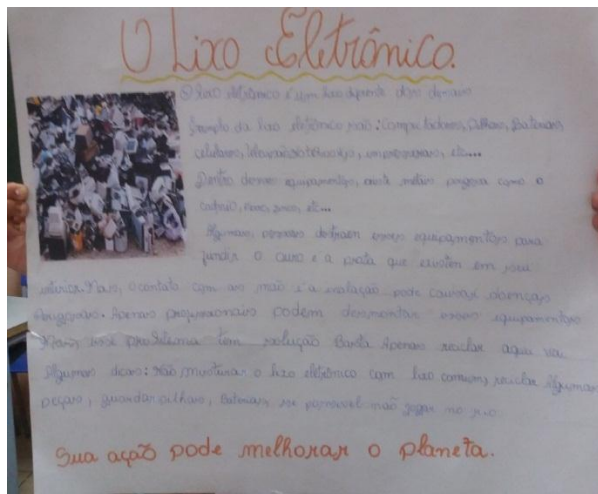 O Lixo Eletrônico.
O lixo eletrônico é um lixo diferente dos demais
Exemplo da lixo eletrônico são: Computadores, Pilhas, Baterias,
celulares, televisão, impressoras, etc...
Dentro desses equipamentos, existe metais perigosa como o
cadmio, etc...
Algumas, pessoas destroem esses equipamentos para
fundir o ouro e a prata que existem em seu
Mas, o contato com as mão e a inalação pode causar doenças
Perigosas. Apenas profissionais podem desmontar esses equipamentos
Mas, esse problema tem solução Basta Apenas reciclar aqui vai
Algumas dicas: Não misturar o lixo eletrônico com lixo comum, reciclar Algumas
peças, guardar pilhas, Baterias, se possivel não jogar no
Sua ação pode melhorar o planeta.